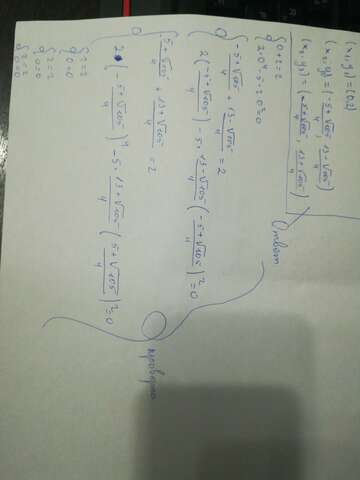 (x₁, y₁) = (0, 2)
(x₂ y₂) = (-5+√105/4, 13-√105/4)
(x₃ y₃) = (-5+√105/4, 13+√105/4)
Ответ
{0+2=2
2·0⁴-5·2·0²=0
{-5+√105/4 + 13-√105/4 = 2
2(-5+√105/4)⁴-5·13-√105/4(-5+√105/4)²=0
проверка
{-5+√105/4 + 13+√105/4 = 2
2(-5+√105/4)⁴-5·13+√105/4(-5+√105/4)²=0
{2=2
0=0
{2=2
0=0
{2=2
0=0